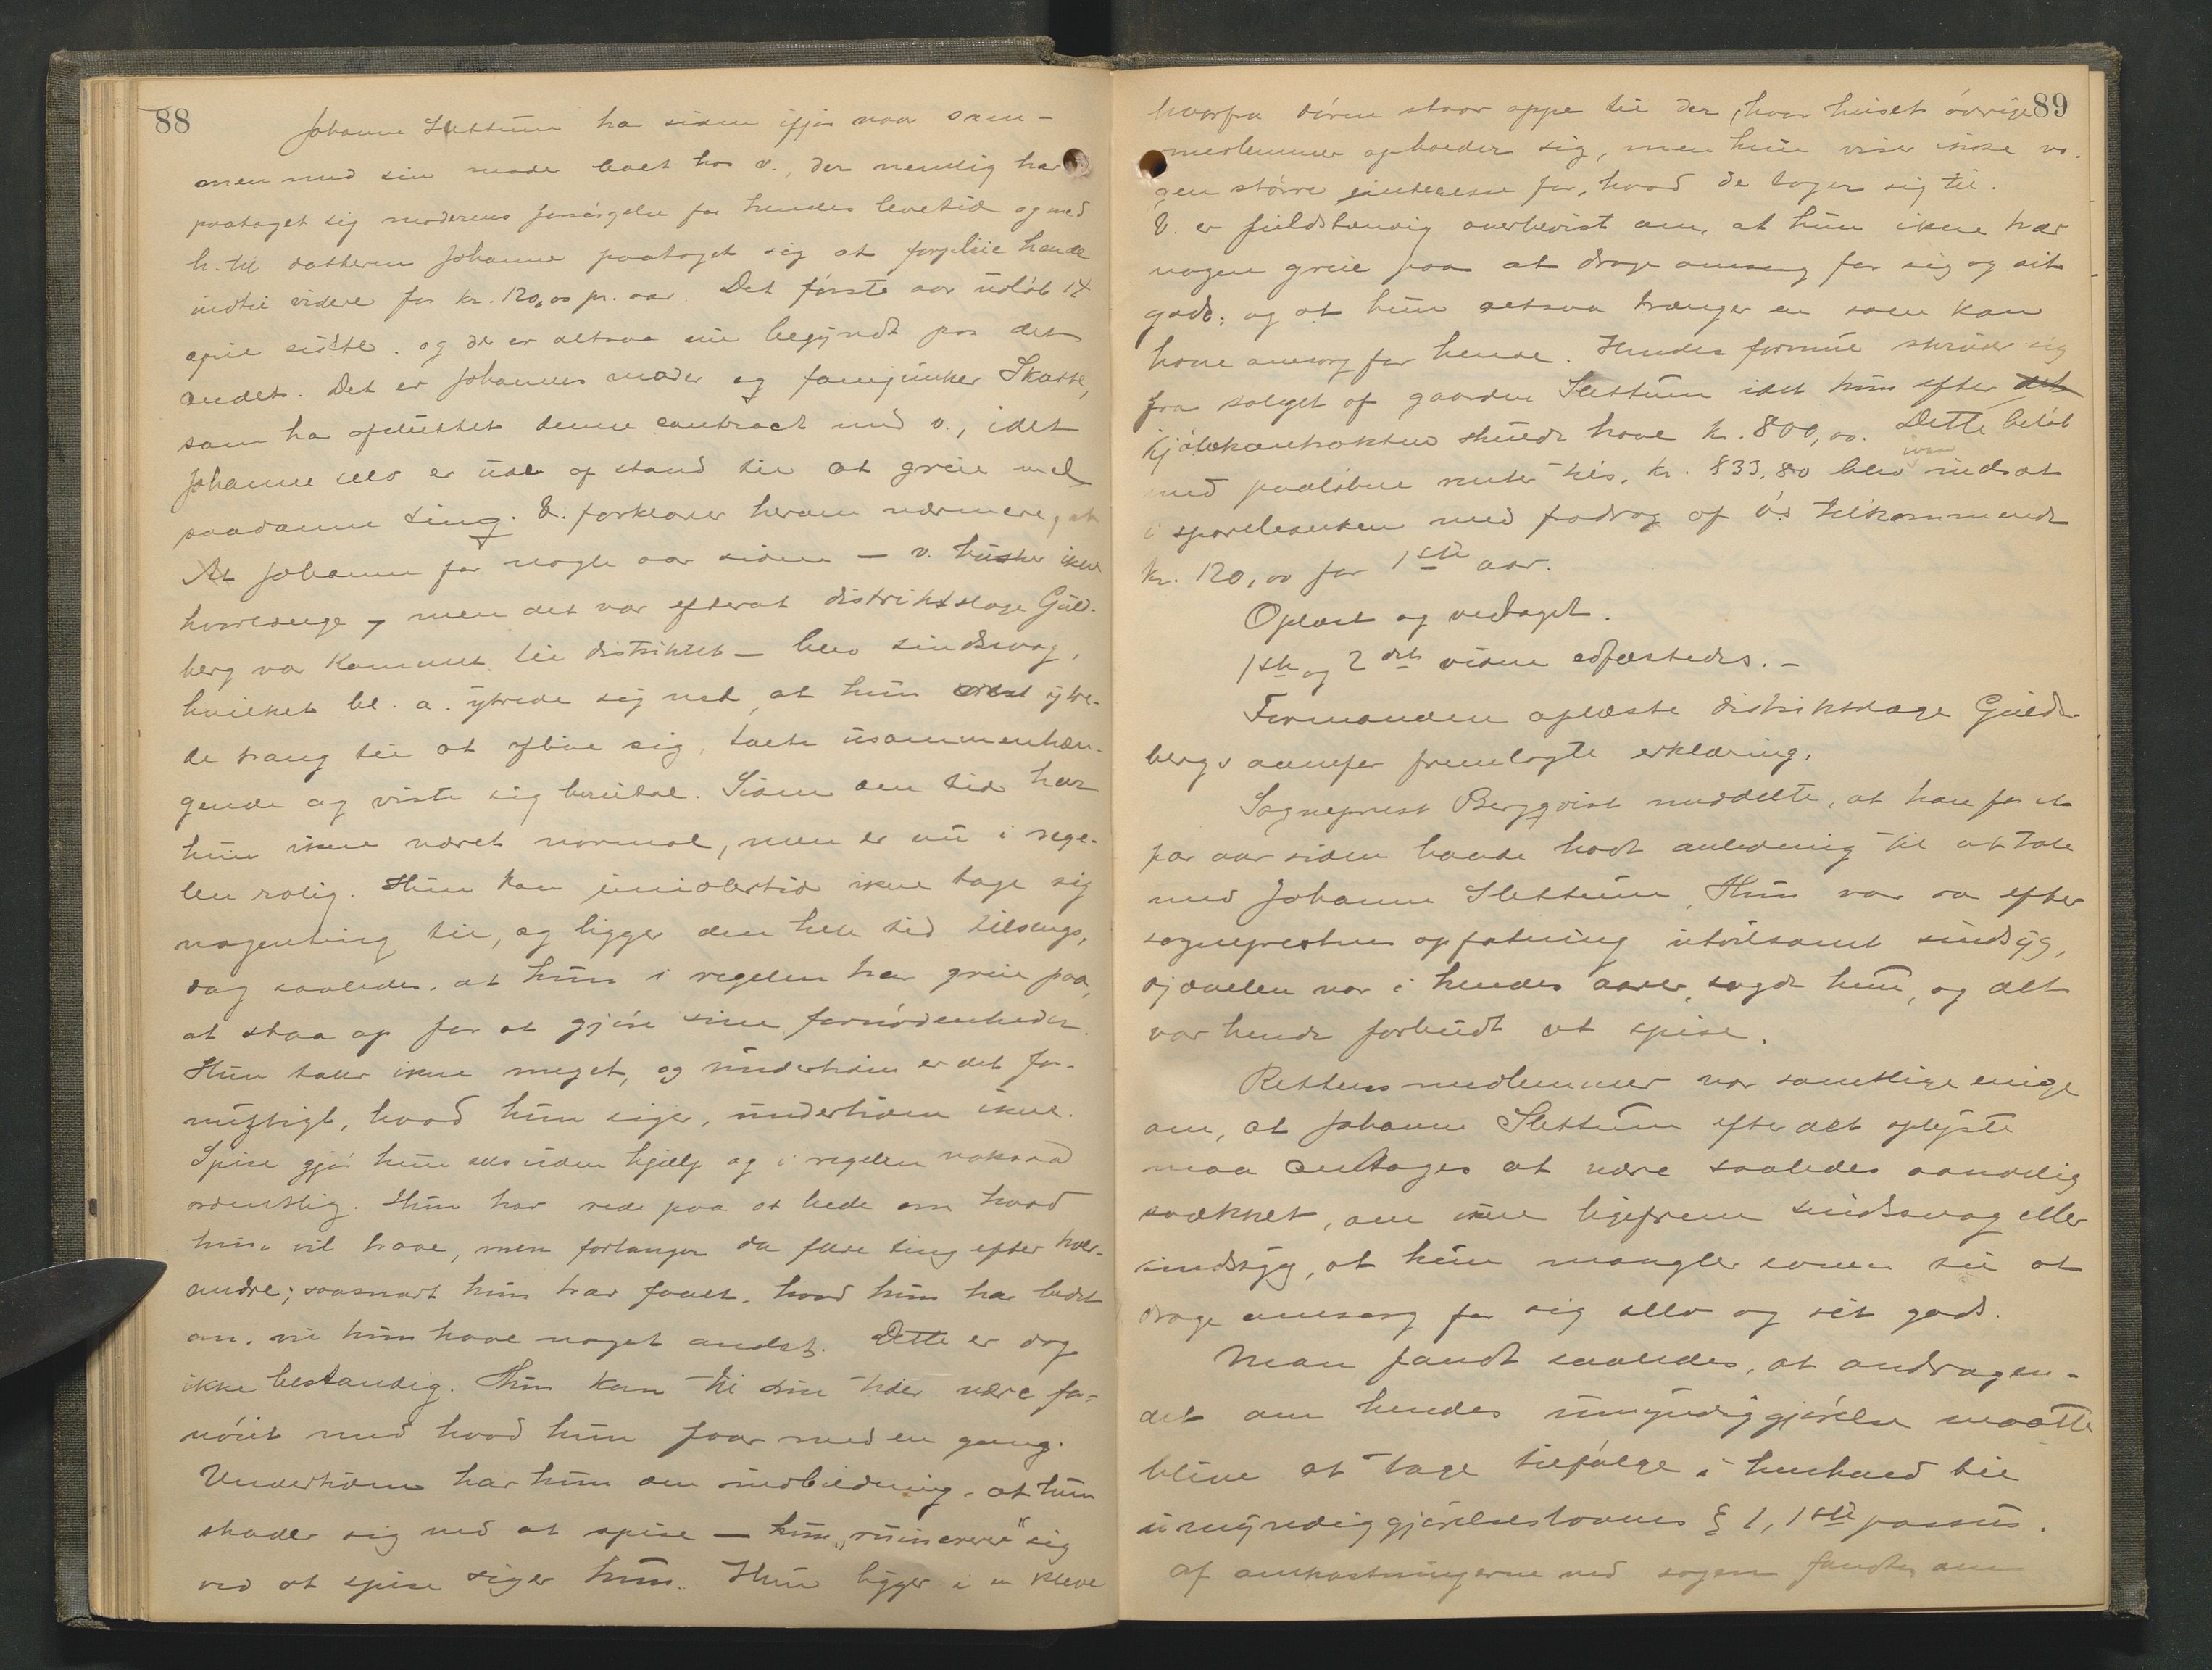 88
Johanne Slettum har siden ifjor vaar sam-
men med sin moder boet hos v., der nemlig har
paataget sig moderens forsørgelse for hendes levetid og med
h. til datteren Johanne paataget sig at forpleie hende
indtil videre for kr. 120,00 pr. aar. Det første aar udløb 14
april sidstl. og der er altsaa nu begyndt paa det
andet. Det er Johannes moder og fanejunker Skatte,
som har afsluttet denne contract med v., idet
Johanne selv er ude af stand til at greie med
saadanne ting. V. forklarer herom nærmere, at
At Johanne for nogle aar siden — v. husker ikke
hvorlænge, men det var efterat distriktslæge Guld-
berg var kommet til distriktet — blev sindssvag,
hvilket bl. a. ytrede sig ved, at hun ytre-
de trang til at aflive sig, talte usammenhæn-
gende og viste sig brutal. Siden den tid har
hun ikke været normal, men er nu i rege-
len rolig. Hun kan imidlertid ikke tage sig
nogenting til, og ligger den hele tid tilsengs,
dog saaledes, at hun i regelen har greie paa,
at staa op for at gjøre sine fornødenheder.
Hun taler ikke meget, og undertiden er det for-
nuftigt, hvad hun siger, undertiden ikke.
Spise gjør hun selv uden hjælp og i regelen noksaa
ordentlig. Hun har rede paa at bede om hvad
hun vil have, men forlanger da flere ting efter hver-
andre; saasnart hun har faaet, hvad hun har bedt
om, vil hun have noget andet. Dette er dog
ikke bestandig. Hun kan til sine tider være for-
nøiet med hvad hun faar med en gang.
Undertiden har hun den indbildning, at hun
skader sig ved at spise — hun „ruinerer" sig
ved at spise siger hun. Hun ligger i en kleve
89
hvorfra døren staar oppe til der, hvor huset øvrige
medlemmer opholder sig, men hun viser ikke no-
gen større interesse for, hvad de tager sig til.
V. er fuldstændig overbevist om, at hun ikke har
nogen greie paa at drage omsorg for sig og sit
gods, og at hun altsaa trænger en som kan
have omsorg for hende. Hendes formue skriver sig
fra salget af gaarden Slettum idet hun efter det
kjøbekontrakten skulde have kr. 800,00. Dette beløb
med paaløbne renter tils. kr. 833,80 blev ivaar indsat
i sparebanken med fradrag af v.s tilkommende
kr. 120,00 for 1ste aar.
Oplæst og vedtaget.
1ste og 2det vidne edfæstedes. —
Formanden oplæste distriktslæge Guld-
bergs ovenfor fremlagte erklæring.
Sogneprest Bergqvist meddelte, at han for et
par aar siden havde havt anledning til at tale
med Johanne Slettum. Hun var da efter
sogneprestens opfatning utvilsomt sindsyg,
djævelen var i hendes aarer, sagde hun, og det
var hende forbudt at spise.
Rettens medlemmer var samtlige enige
om, at Johanne Slettum efter det oplyste
maa antages at være saaledes aandelig
svækket, om ikke ligefrem sindssvag eller
sindssyg, at hun mangler evnen til at
drage omsorg for sig selv og sit gods.
Man fandt saaledes, at andragen-
det om hendes umyndiggjørelse maatte
blive at tage tilfølge i henhold til
umyndiggjørelseslovens § 1, 1ste passus.
Af omkostningerne ved sagen fandtes den